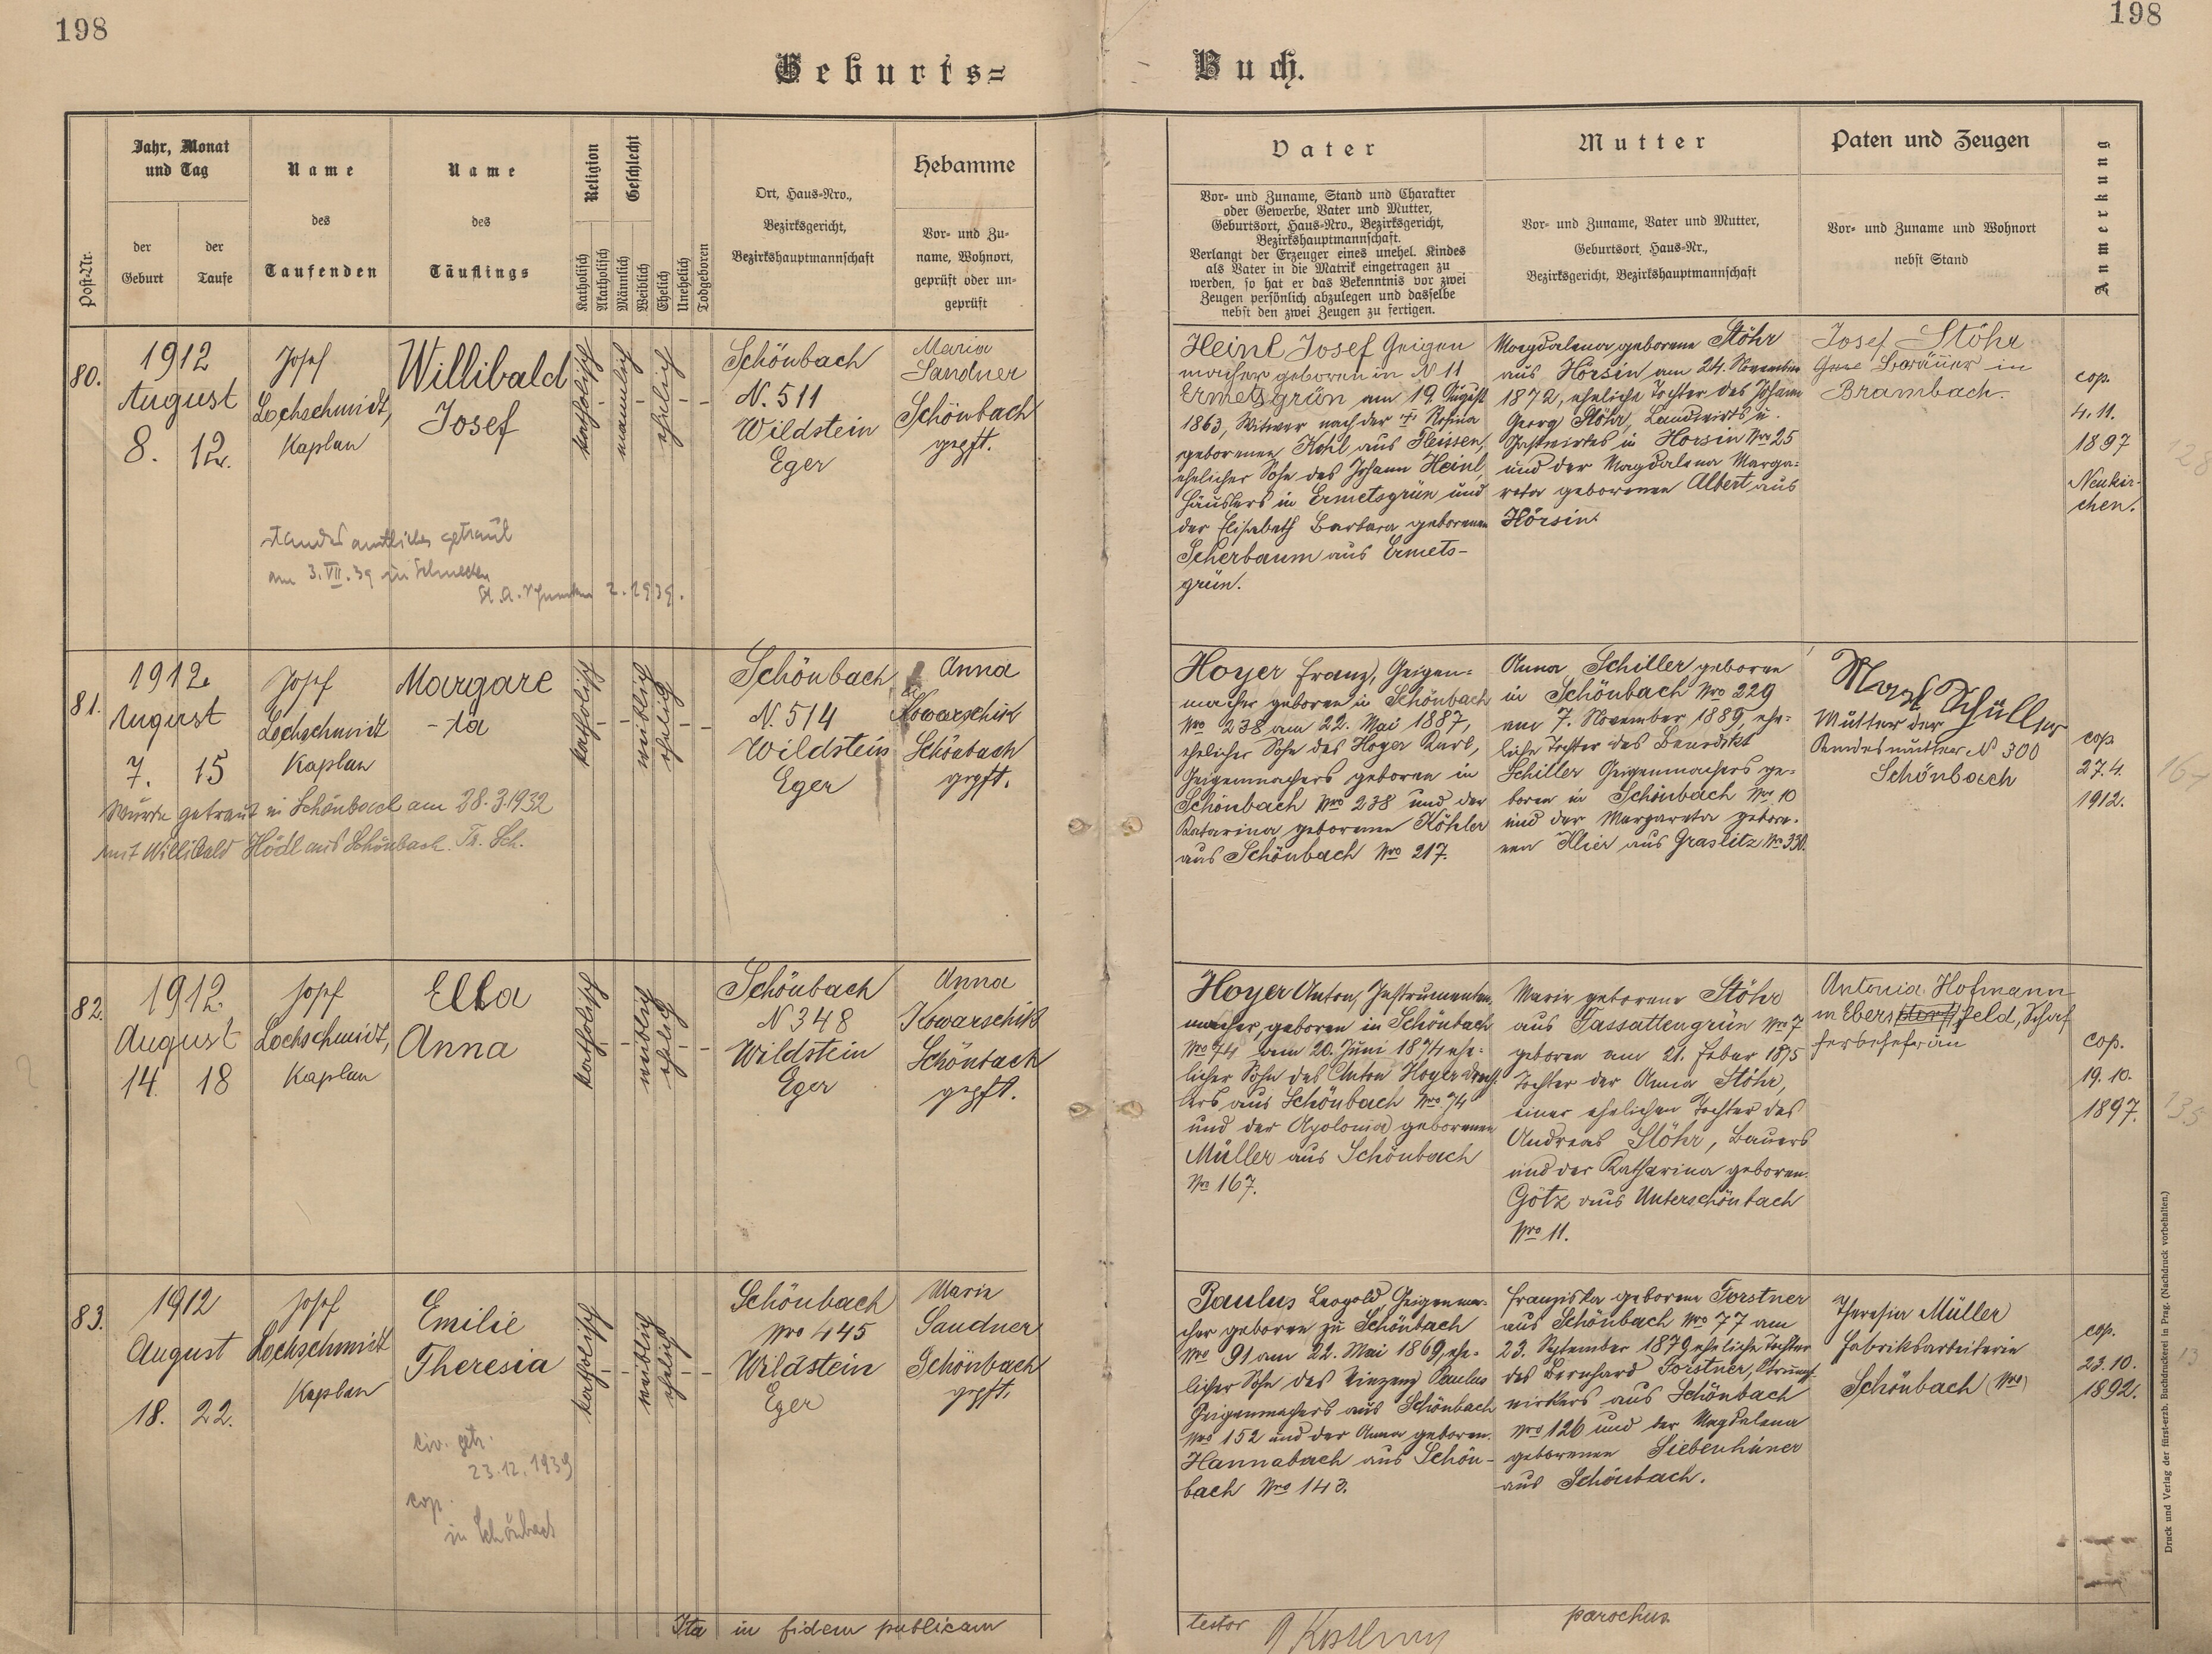 198
198
Geburts=
Buch.
Post-Nr.
Jahr, Monat
und Tag
der
Geburt
der
Taufe
Name
des
Taufenden
Name
des
Täuflings
Religion
Katholisch
Akatholisch
Geschlecht
Männlich
Weiblich
Ehelich
Unehelich
Todgeboren
Ort, Haus-Nro.,
Bezirksgericht,
Bezirkshauptmannschaft
Hebamme
Vor- und Zu-
name, Wohnort,
geprüft oder un-
geprüft
Vater
Vor- und Zuname, Stand und Charakter
oder Gewerbe, Vater und Mutter,
Geburtsort, Haus-Nro., Bezirksgericht,
Bezirkshauptmannschaft.
Verlangt der Erzeuger eines unehel. Kindes
als Vater in die Matrik eingetragen zu
werden, so hat er das Bekenntnis vor zwei
Zeugen persönlich abzulegen und dasselbe
nebst den zwei Zeugen zu fertigen.
Mutter
Vor- und Zuname, Vater und Mutter,
Geburtsort, Haus-Nr.,
Bezirksgericht, Bezirkshauptmannschaft
Paten und Zeugen
Vor- und Zuname und Wohnort
nebst Stand
Anmerkung
80.
1912
August
8. 12.
Josef
Lochschmidt,
Kaplan
Willibald
Josef
katholisch
männlich
ehelich
Schönbach
N. 511
Wildstein
Eger
Maria
Sandner
Schönbach
gepft.
Heinl Josef Geigen
macher geboren in N 11
Ermetsgrün am 19. August
1863, Witwer nach der Rosina
geborenen Kohl aus Fleissen,
ehelicher Sohn des Johann Heinl,
Häuslers in Ermetsgrün und
der Elisabeth Barbara geborenen
Scherbaum aus Ermets-
grün.
Magdalena geborene Stöhr
aus Hörsin am 24. November
1872, eheliche Tochter des Johann
Georg Stöhr, Landwirts u.
Gastwirtes in Horsin Nro 25
und der Magdalena Marga-
reta geborenen Albert aus
Hörsin.
Josef Stöhr
in
Brambach.
cop.
4. 11.
1897
Neukir-
chen.
standesamtlich getraut
am 3. VII. 39 in
2. 1939.
81.
1912
August
7. 15
Josef
Lochschmidt
Kaplan
Margare
- ta
katholisch
weiblich
ehelich
Schönbach
N. 514
Wildstein
Eger
Anna
Kowarschik
Schönbach
gepft.
Hoyer Franz, Geigen-
macher geboren in Schönbach
Nro 238 am 22. Mai 1887,
ehelicher Sohn des Hoyer Karl,
Geigenmachers geboren in
Schönbach Nro 238 und der
Katarina geborenen Köhler
aus Schönbach Nro 217.
Anna Schiller geboren
in Schönbach Nro 229
am 7. November 1889, ehe-
liche Tochter des Benedikt
Schiller Geigenmachers ge-
boren in Schönbach Nro 10
und der Margareta gebore-
nen Klier aus Graslitz Nro 330.
Mutter der
Kindesmutter N 300
Schönbach
cop
27. 4.
1912.
Wurde getraut in Schönbach am 28. 3. 1932
mit Willibald Hödl aus Schönbach. Tr. Sch.
82.
1912.
August
14. 18
Josef
Lochschmidt,
Kaplan
Ella
Anna
katholisch
weiblich
ehelich
Schönbach
N 348
Wildstein
Eger
Anna
Kowarschik
Schönbach
gepft.
Hoyer Anton, Instrumenten-
macher, geboren in Schönbach
Nro 74 am 20. Juni 1874 ehe-
licher Sohn des Anton Hoyer Drechs-
lers aus Schönbach Nro 74
und der Apolonia geborenen
Müller aus Schönbach
Nro 167.
Marie geborene Stöhr
aus Fassattengrün Nro 7
geboren am 21. Feber 1875
Tochter der Anna Stöhr,
einer ehelichen Tochter des
Andreas Stöhr, Bauers
und der Katharina geboren.
Götz aus Unterschönbach
Nro 11.
Antonia Hofmann
in Ebersfeld,
cop.
19. 10.
1897.
83.
1912
August
18. 22.
Josef
Lochschmidt
Kaplan
Emilie
Theresia
katholisch
weiblich
ehelich
Schönbach
Nro 445
Wildstein
Eger
Marie
Sandner
Schönbach
gepft.
Paulus Leopold Geigenma-
cher geboren zu Schönbach
Nro 91 am 22. Mai 1869, ehe-
licher Sohn des Vinzenz Paulus
Geigenmachers aus Schönbach
Nro 152 und der Anna geboren.
Hannabach aus Schön-
bach Nro 143.
Franziska geborene Forstner
aus Schönbach Nro 77 am
23. September 1879, eheliche Tochter
des Bernhard Forstner, Strumpf-
wirkers aus Schönbach
Nro 126 und der Magdalena
geborenen Siebenhüner
aus Schönbach.
Theresia Müller
Fabriksarbeiterin
Schönbach (Nro)
cop.
23. 10.
1892.
civ. getr.
23. 12. 1939
cop.
in Schönbach
Ita in fidem publicam
testor
parochus
Druck und Verlag der fürst-erzb. Buchdruckerei in Prag. (Nachdruck vorbehalten.)